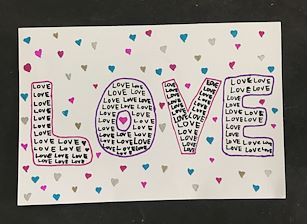 LOVE
LOVE
LOVE
LOVE
LOVE
LOVE
LOVE
LOVE
LOVE LOVE
LOVE LOVE
LOVE LOVE LOVE
LOVE LOVE LOVE
LOVE LOVE
LOVE LOVE
LOVE LOVE LOVE
LOVE LOVE LOVE
LOVE LOVE
LOVE LOVE
LOVE LOVE
LOVE LOVE LOVE
LOVE LOVE LOVE
LOVE LOVE
LOVE LOVE
LOVE LOVE
LOVE LOVE
LOVE LOVE
LOVE LOVE
LOVE LOVE
LOVE
LOVE
LOVE LOVE
LOVE LOVE
LOVE
LOVE LOVE
LOVE LOVE
LOVE
LOVE LOVE LOVE
LOVE LOVE LOVE